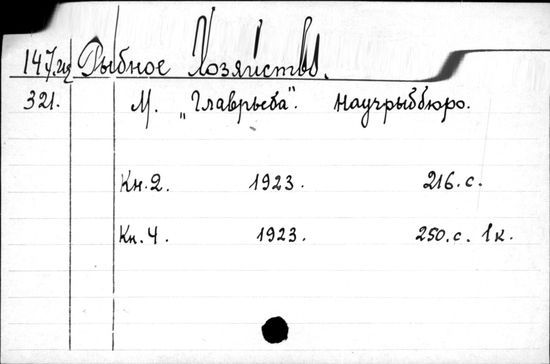 147. Рыбное Хозяйство.
321. М. „Главрыба". Научрыббюро.
Кн. 2. 1923. 216. с.
Кн. 4. 1923. 250. с. 1 к.